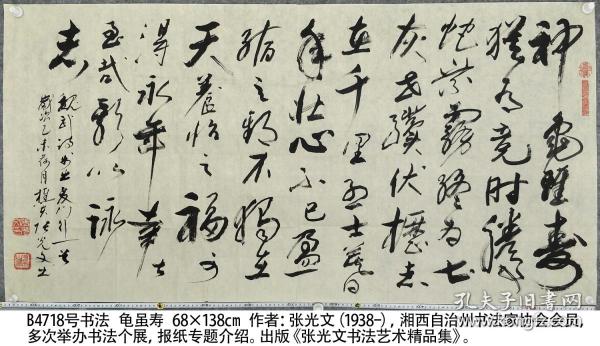 神龜雖壽
猶有竟时騰
蛇乘霧終为土
灰老驥伏櫪志
在千里烈士暮
年壮心不已盈
縮之期不獨在
天養怡之福可
得永年幸甚
至哉歌以詠
志
歲次乙未荷月
张光文书
B4718号书法 龟虽寿 68×138cm 作者：张光文（1938-），湘西自治州书法家协会会员，
多次举办书法个展，报纸专题介绍。出版《张光文书法艺术精品集》。